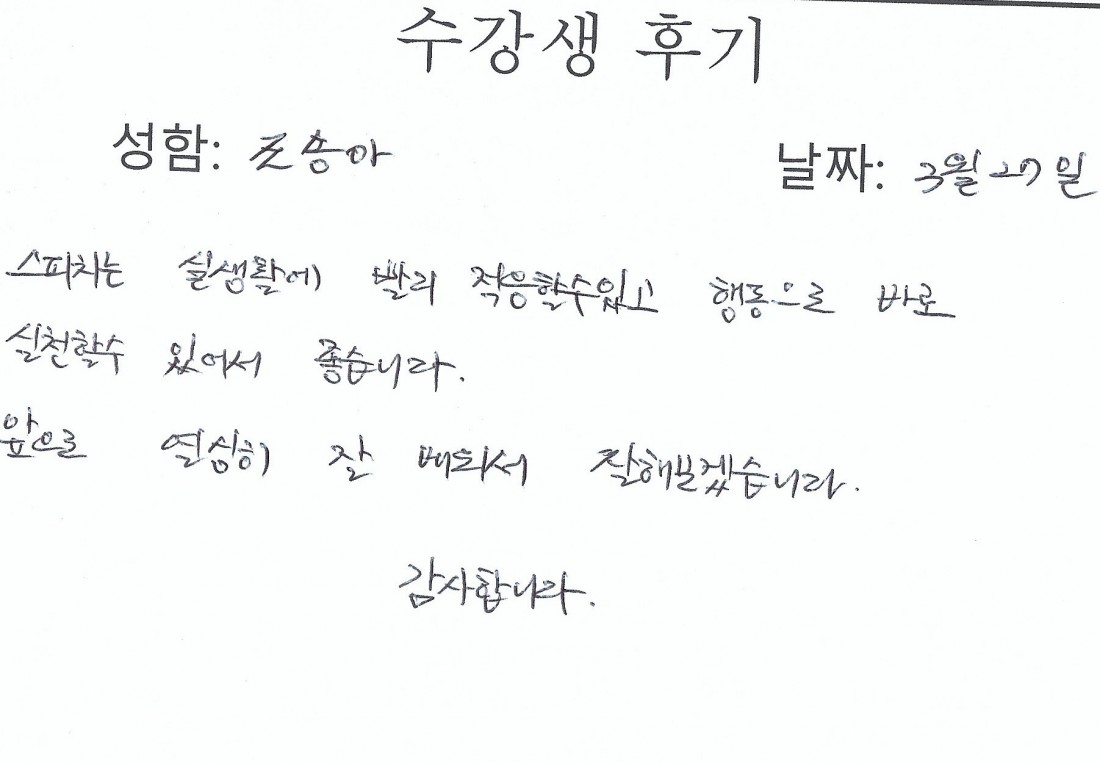 수강생 후기
성함: 조승아 날짜: 3월 27일
스피치는 실생활에 빨리 적응할수있고 행동으로 바로
실천할수 있어서 좋습니다.
앞으로 열심히 잘 배워서 잘해보겠습니다.
감사합니다.